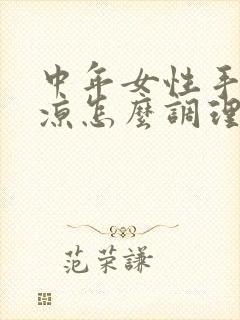 中年女性手
涼怎麼調理
范荣謙